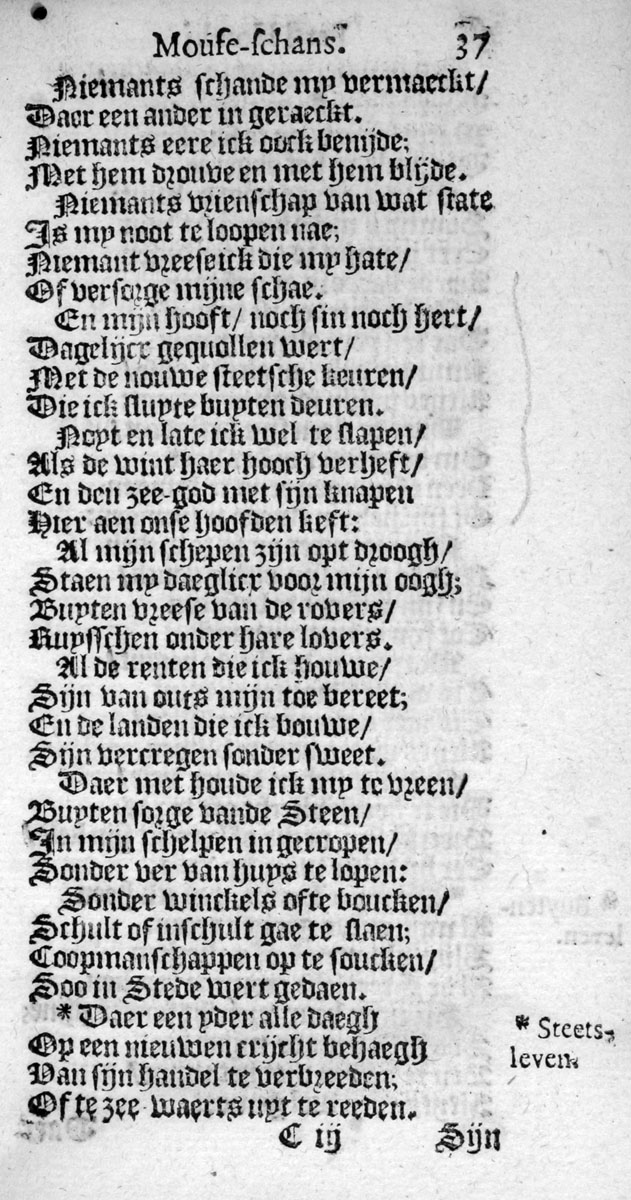 Mouse-schans. 37
Niemants schande my vermaeckt/
Daer een ander in geraeckt.
Niemants eere ick oock benijde;
Met hem drouve en met hem blijde.
Niemants vrienschap van wat state
Is my noot te loopen nae;
Niemant vreese ick die my hate/
Of versorge mijne schae.
En mijn hooft/ noch sin noch hert/
Dagelijcx gequollen wert/
Met de nouwe steetsche keuren/
Die ick sluyte buyten deuren.
Noyt en late ick wel te slapen/
Als de wint haer hooch verheft/
En den zee-god met sijn knapen
Hier aen onse hoofden keft:
Al mijn schepen zijn opt droogh/
Staen my daeglicx voor mijn oogh;
Buyten vreese van de rovers/
Ruysschen onder hare lovers.
Al de renten die ick houwe/
Sijn van outs mijn toe bereet;
En de landen die ick bouwe/
Sijn vercregen sonder sweet.
Daer met houde ick my te vreen/
Buyten sorge vande Steen/
In mijn schelpen in gecropen/
Sonder ver van huys te lopen:
Sonder winckels ofte boucken/
Schult of inschult gae te slaen;
Coopmanschappen op te soucken/
Soo in Stede wert gedaen.
* Daer een yder alle daegh
Op een nieuwen crijcht behaegh
Van sijn handel te verbreeden;
Of te zee-waerts uyt te reeden.
* Steets-
leven.
C iij Sijn